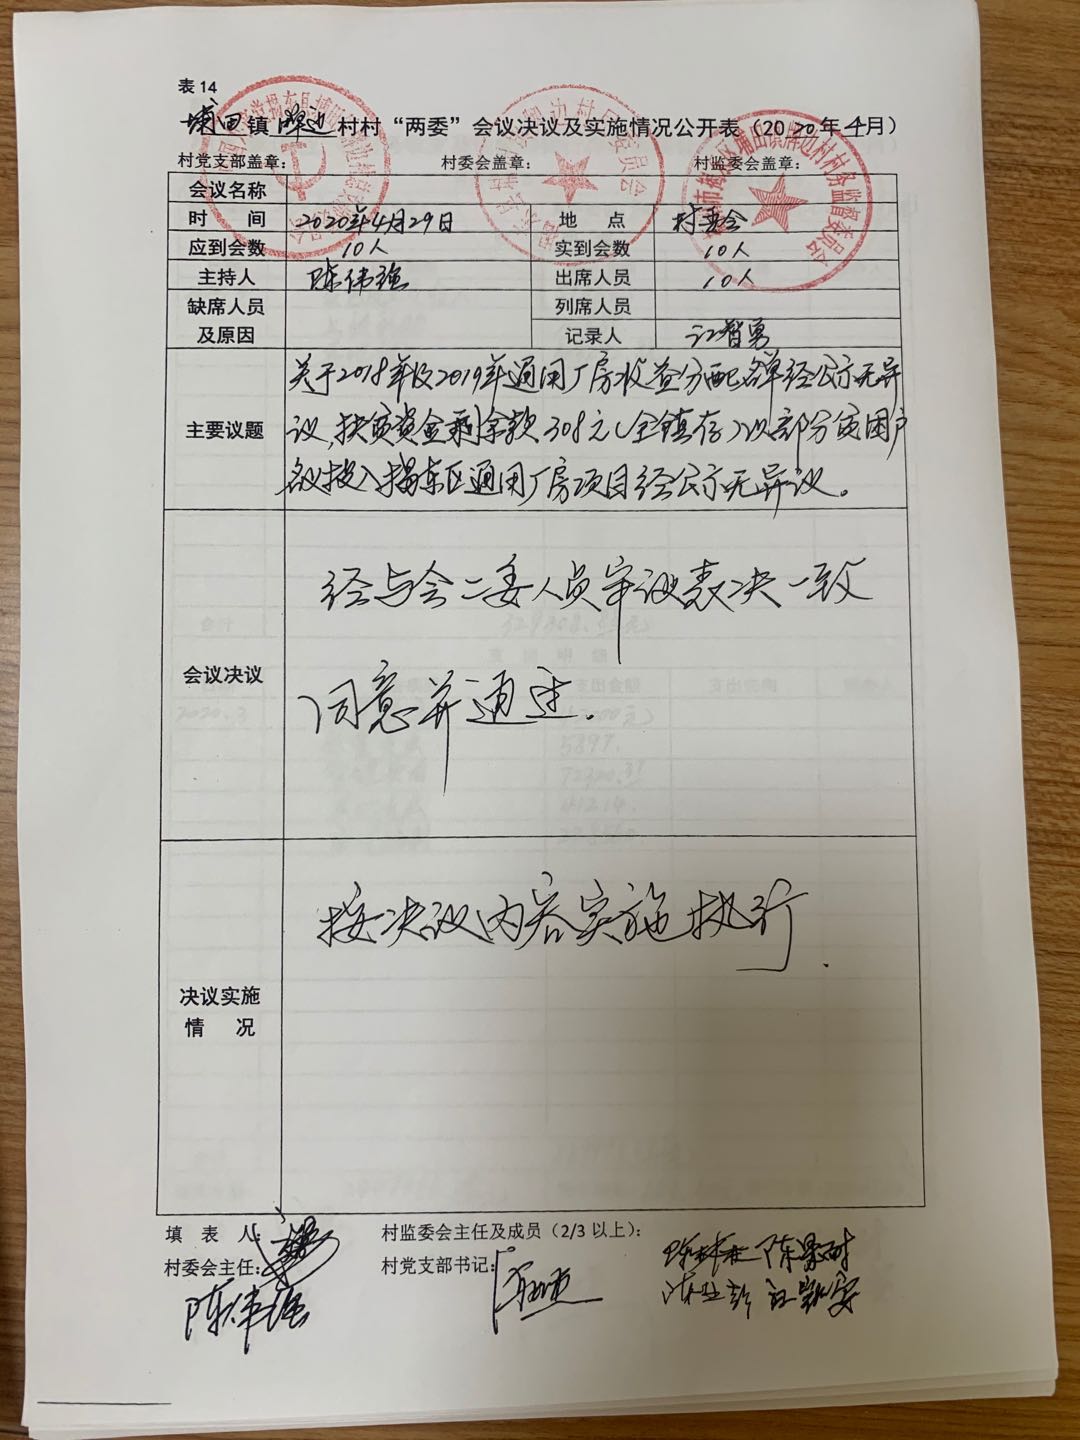 表 14
埔田镇牌边村村“两委”会议决议及实施情况公开表（2020年4月）
村党支部盖章： 村委会盖章： 村监委会盖章：
会议名称
时 间 2020年4月29日 地 点 村委会
应到会数 10人 实到会数 10人
主持人 陈伟强 出席人员 10人
缺席人员及原因 列席人员
记录人 江智勇
主要议题
关于2018年及2019年通用厂房收益分配名单经公示无异
议，扶贫资金剩余款308元（全镇存）以部分贫困户
名义投入揭东区通用厂房项目经公示无异议。
会议决议
经与会二委人员审议表决一致
同意并通过.
决议实施情 况
按决议内容实施执行.
填 表 人： 村监委会主任及成员（2/3 以上）：
村委会主任： 村党支部书记：
陈伟强